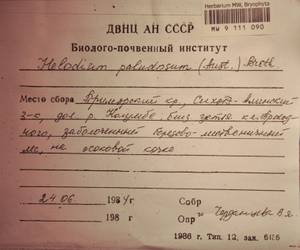 Herbarium MW, Bryophyta
MW 9 111 090
ДВНЦ АН СССР
Биолого-почвенный институт
Helodium paludosum (Aust.) Broth
Место сбора Приморский кр., Сихотэ-Алинский
з-к, дол. р. Колумбе. Близ устья кл.
заболоченный березово-лиственничный
лес, на осоковой кочке
24 06 1984 г Собр
198 г. Опр Черданцева В.Я.
1986 г. Тип. 12, зак.